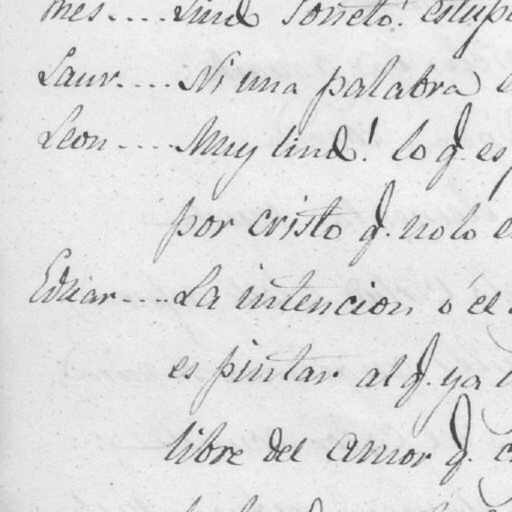 mes.... Lind Soneto! estup
Laur.... Ni una palabra e
Leon.... Muy lind! lo q. es
por cristo q. no lo e
.... La intencion ó el
es pintar al q. ya
libre del amor q. c